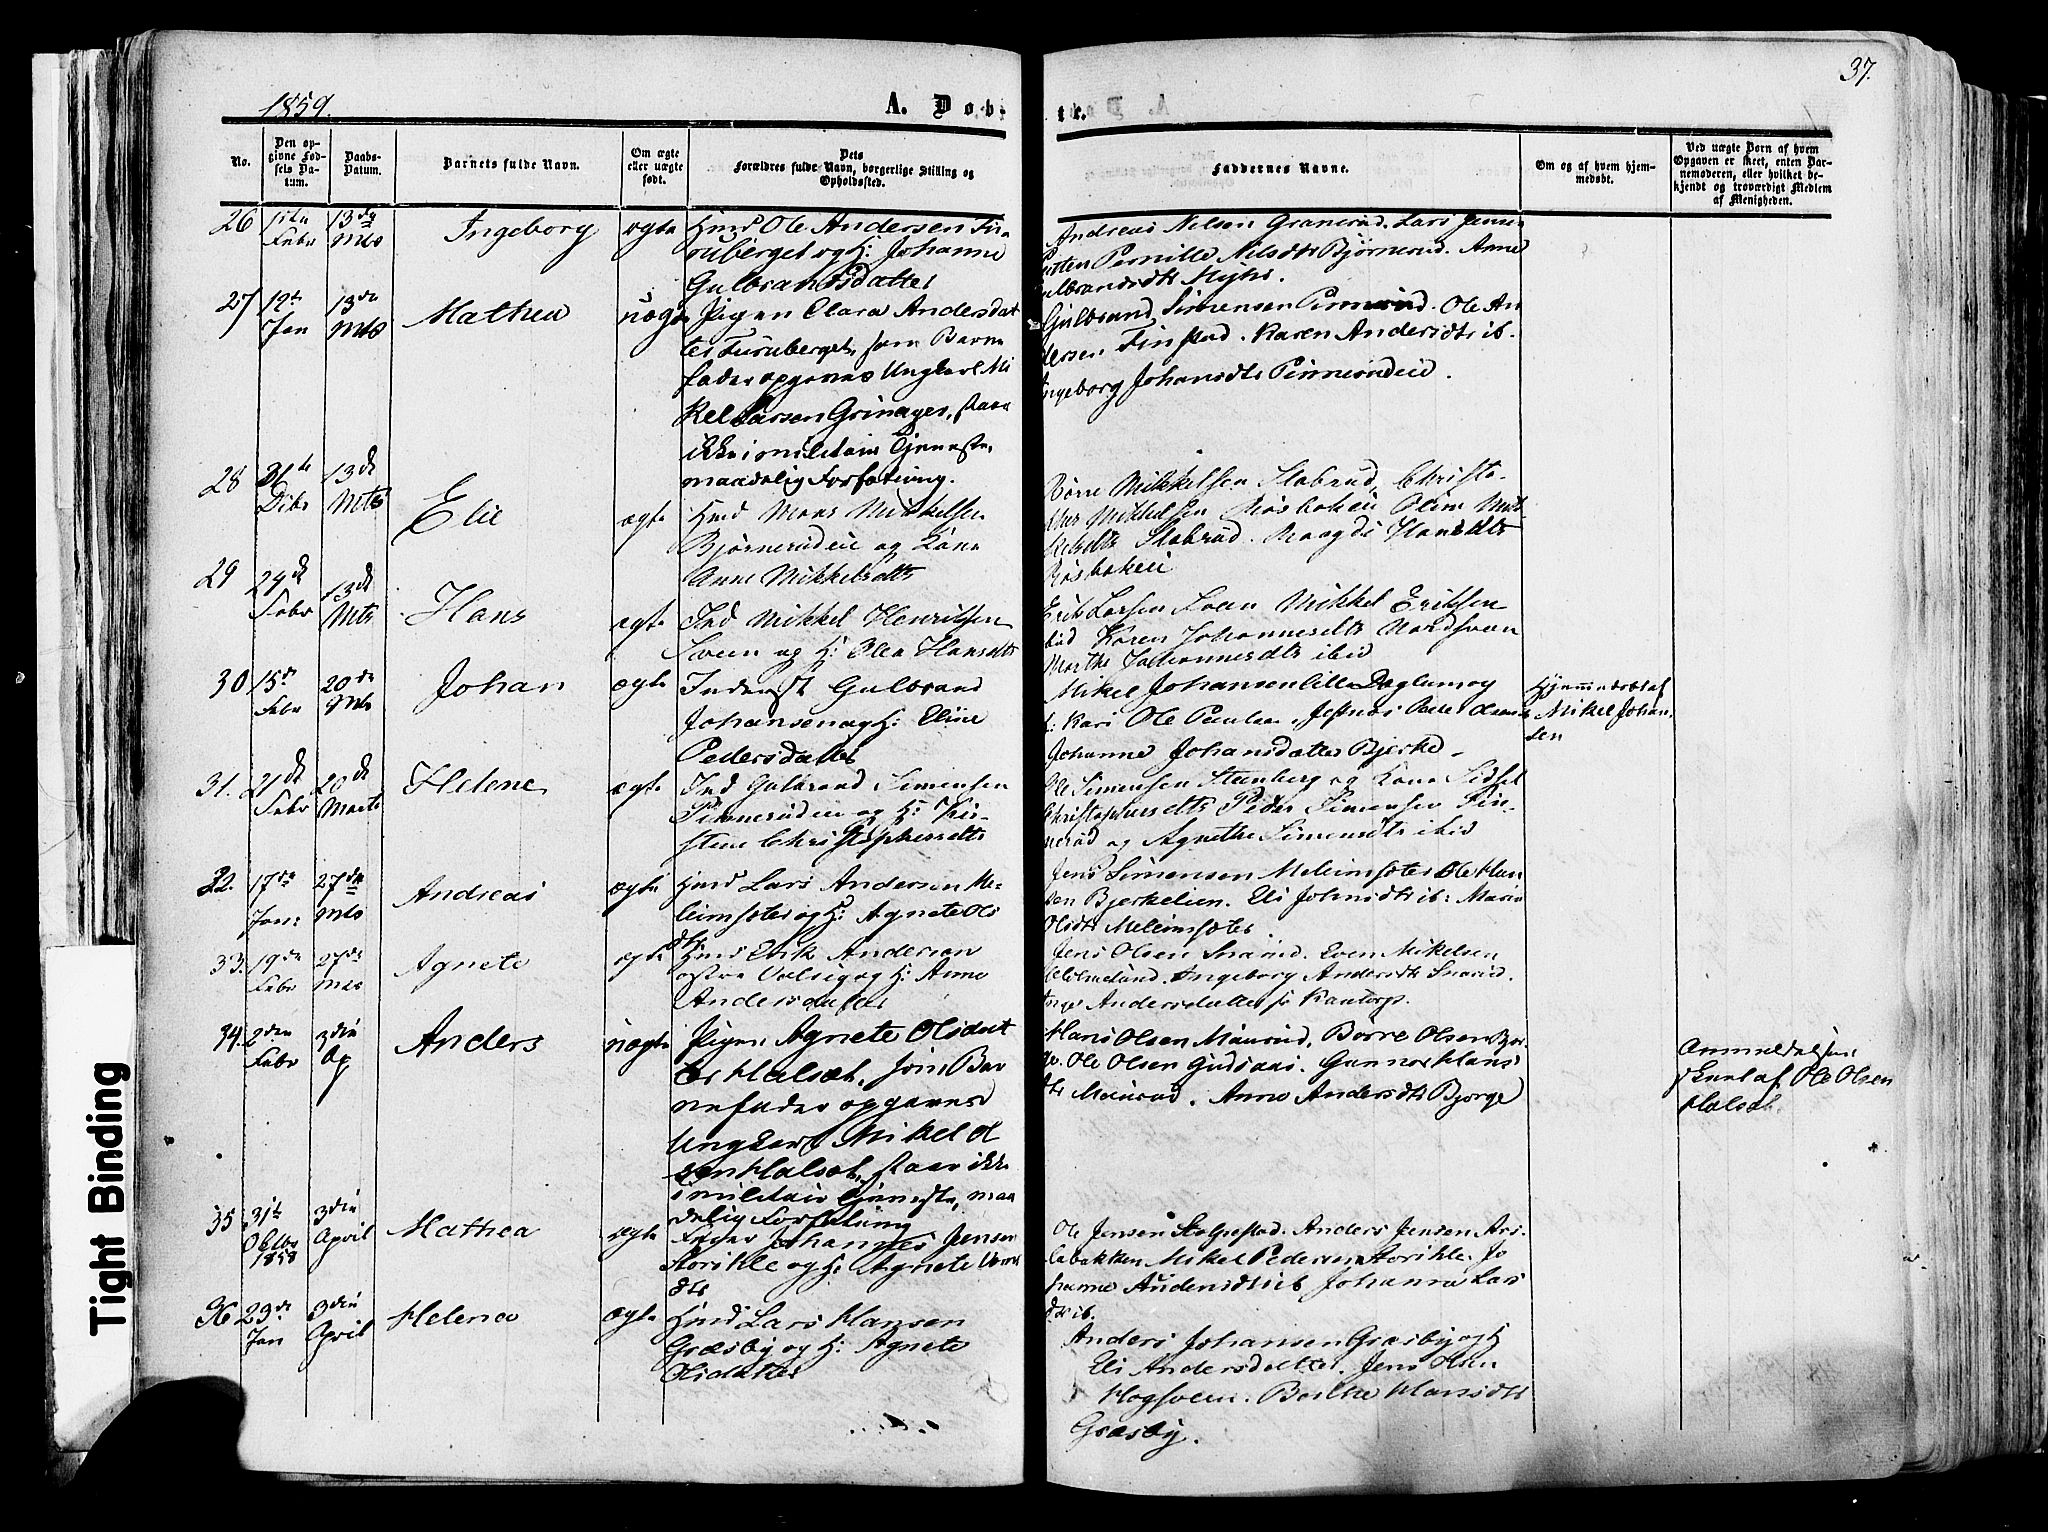 37.
1859.
A. Døb-
te.
No.
Den op-
givne Fød-
sels Da-
tum.
Daabs-
Datum.
Barnets fulde Navn.
Om ægte
eller uægte
født.
Dets
Forældres fulde Navn, borgerlige Stilling og
Opholdssted.
Faddernes Navne.
Om og af hvem hjem-
medøbt.
Ved uægte Børn af hvem
Opgaven er skeet, enten Bar-
nemoderen, eller hvilket be-
kjendt og troværdigt Medlem
af Menigheden.
26
Febr
Mts
Ingeborg
ægte
Hmd Ole Andersen Fu-
ruberget og H: Johanne
Gulbransdatter
Andreas Nilsen Granerud. Lars Jensen
Pernille Nilsdtr Bjørnerud. Anne
27
12te
Jan
13de
Mts
Mathea
uægte
Pigen Clara Andersdat
ter Furuberget, som Barne
fader opgives Ungkarl Mi
kel Larsen Grinager, staar
ikke i militair Tjeneste,
maadelig Forfatning.
Gulbrand Simensen Pinnerud. Ole An
dersen Finstad. Karen Andersdtr ib.
Ingeborg Johansdtr Pinnerudeie.
28
31te
Dcbr
13de
Mts
Elie
ægte
Hmd Mons Mikkelsen
Bjørnerudeie og Kone
Anne Mikkelsdtr
Børre Mikkelsen Slabrud, Christo-
Mikkelsen Oline Mik
kelsdtr Slabrud. Hansdtr
29
24de
Febr
13de
Mts
Hans
ægte
Ind Mikkel Henriksen
Sveen og H: Olea Hansdtr
Erik Larsen Sveen Mikkel Eriksen
ibid Karen Johannesdtr Nordsveen
Marthe Johannesdtr ibid
30
15de
Febr
20de
Mts
Johan
ægte
Inderst Gulbrand
Johansen og H: Eline
Pedersdatter
Mikel Johansen Lille Døglum og
H: Kari Ole Paulsen
Johanne Johansdatter Bjerke
Hjemmedøbt af
Mikel Johan-
sen
31.
21de
Febr
20de
Marts
Helene
ægte
Ind Gulbrand Simensen
Pinnerudeie og H: Kir-
stine Christophersdtr
Ole Simensen Stenberg og Kone Sidsel
Christophersdtr Peder Simensen Pin-
nerud og Agnethe Simensdtr ibid
32.
17de
Jan:
27de
Mts
Andreas
ægte
Hmd Lars Andersen Me-
leimsæter og H: Agnete Ols
dtr
Jens Simensen Meleimsæter Ole Han
sen Bjerkelien. Eli Johnsdtr ib: Marie
Olsdtr Meleimsæter.
33.
19de
Febr
27de
Mts
Agnete
ægte
Hmd Erik Andersen
østre Valsig og H: Anne
Andersdatter
Jens Olsen Snarud. Even Mikelsen
Ingeborg Andersdtr Snarud.
Inger Andersdatter
34.
2den
Febr
3die
Ap
Anders
uægte
Pigen Agnete Olsdat
ter Halsæt, som Bar
nefader opgives
Ungkarl Mikel Ol
sen Halsæt, staar ikke
i militair Tjeneste, maa
delig Forfatning
Hans Olsen Maurud, Børre Olsen Bjør-
ge. Ole Olsen Gudsaas. Gunnor Hans
dtr Maurud. Anne Andersdtr Bjørge
Anmeldelsen
skeet af Ole Olsen
Halsæt.
35
31te
Octbr
1858
3die
April
Mathea
ægte
Johannes Jensen
Storihle og H: Agnete
dtr
Ole Jensen Skolgrestad. Anders Jensen Ars-
labakken Mikel Pedersen Storihle. Jo
hanne Andersdtr ib Johanne Lars
dtr ib.
36
29de
Jan
3die
April
Helene
ægte
Hmd Lars Hansen
Græsby og H: Agnete
Olsdatter
Anders Johansen Græsby og H
Eli Andersdatter. Jens Olsen
Hogsveen. Berthe Hansdtr
Græsby.
Tight Binding